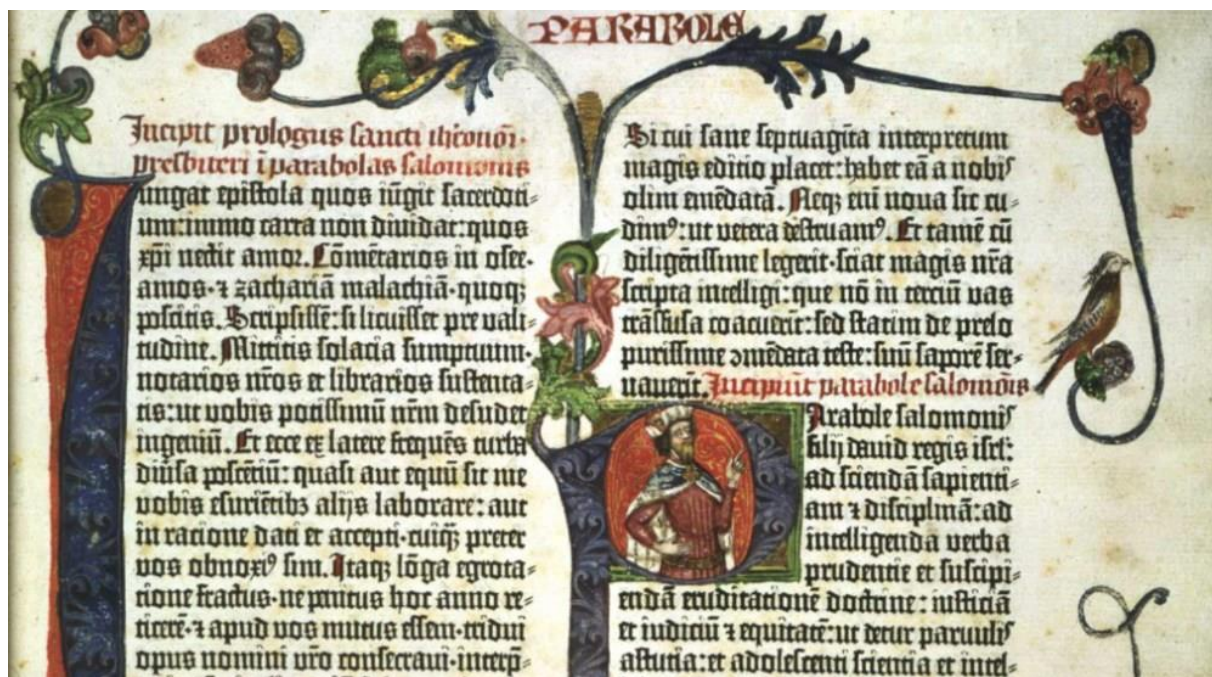 PARABOLE
Incipit prologus sancti iheronimi
presbiteri ī parabolas salomonis
Iungat epistola quos iūgit sacerdoti⸗
um: immo carta non dividat: quos
xp̄i nectit amor. Cōmētarios in osee.
amos. ⁊ zachariā malachiā. quoqꝫ
poscitis. Scripsissē: si licuisset pre vali⸗
tudine. Mittitis solacia sumptuum.
notarios nr̄os et librarios sustenta⸗
tis: ut vobis potissimū nr̄m desudet
ingeniū. Et ecce ex latere frequēs turba
diūsa poscētiū: quasi aut equū sit me
vobis esuriētibꝫ alijs laborare: aut
in ratione dati et accepti. cuiqꝫ preter
vos obnoxiꝰ sim. Itaqꝫ lōga egrota⸗
tione fractus. ne penitus hoc anno re⸗
ticerē. ⁊ apud vos mutus essem. tridui
opus nomini vr̄o consecravi. interp̄⸗
Si cui sane septuagīta interpretum
magis editio placet: habet eā a nobis
olim emēdatā. Neqꝫ eni nova sic cu⸗
dimꝰ: ut vetera destruamꝰ. Et tamē cū
diligētissime legerit. sciat magis nr̄a
scripta intelligi: que nō in terciū vas
trāsfusa coacuerit: sed statim de prelo
purissime ꝯmēdata teste: suū saporē ser⸗
vaverit. Incipiūt parabole salomōis
Parabole salomonis
filij david regis isrl̄:
ad sciendā sapienti⸗
am ⁊ disciplinā: ad
intelligenda verba
prudentie et suscipi⸗
endā eruditationē doctrine: iusticiā
et iudiciū ⁊ equitatē: ut detur parvulis
astutia: et adolescenti scientia et intel⸗